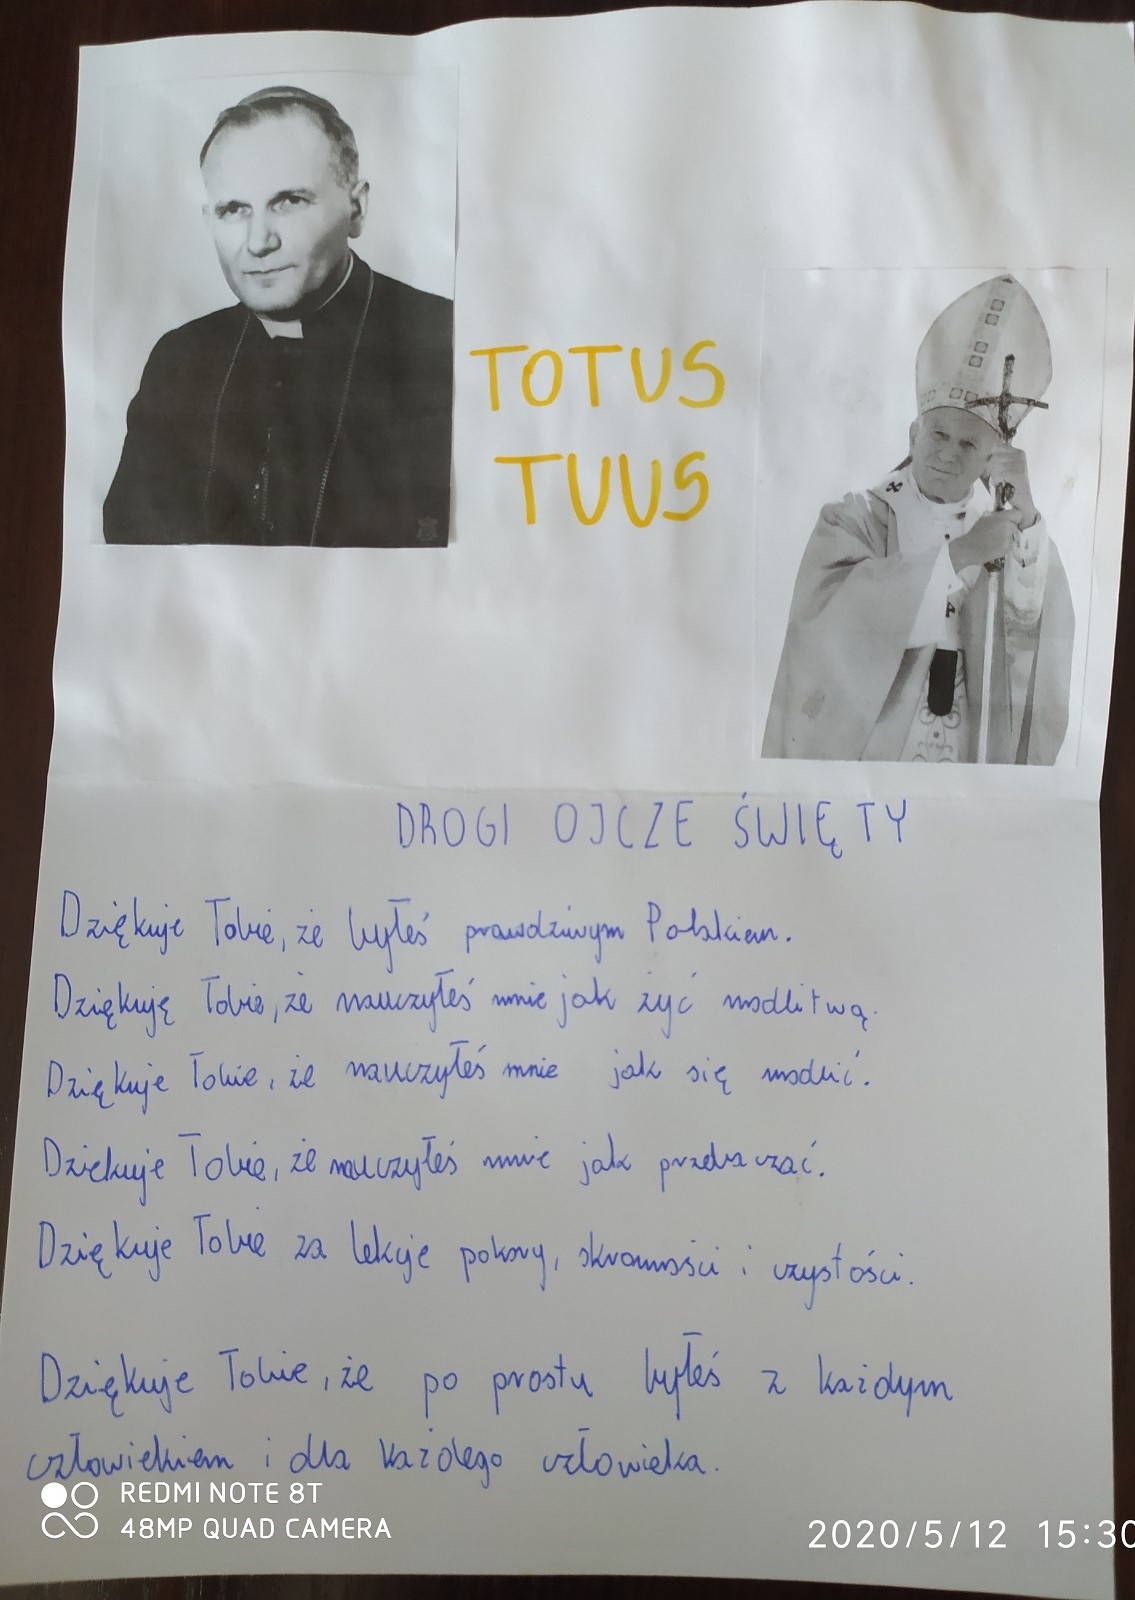 TOTUS
TUUS
DROGI OJCZE ŚWIĘTY
Dziękuje Tobie, że byłeś prawdziwym Polakiem.
Dziękuję Tobie, że nauczyłeś mnie jak żyć modlitwą.
Dziękuje Tobie, że nauczyłeś mnie jak się modlić.
Dziekuje Tobie, że nauczyłeś mnie jak przebaczać.
Dziękuje Tobie za lekcje pokory, skromności i czystości.
Dziękuje Tobie, że po prostu byłeś z każdym
człowiekiem i dla każdego człowieka.
REDMI NOTE 8T
48MP QUAD CAMERA
2020/5/12 15:30